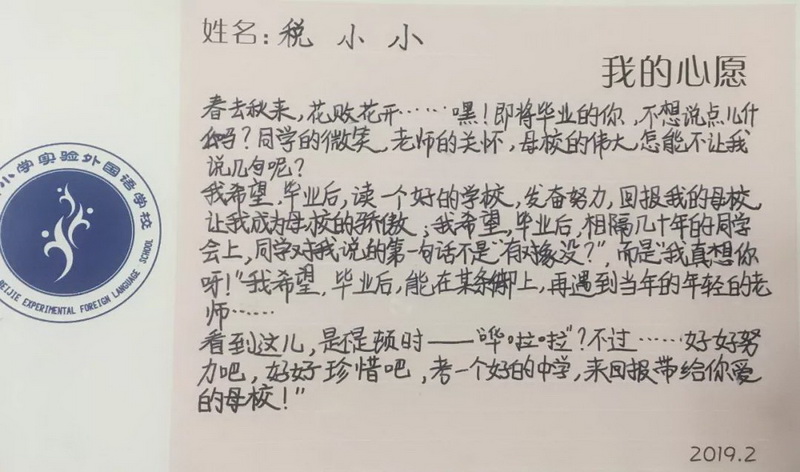 姓名：税小小
我的心愿
春去秋来，花败花开……嘿！即将毕业的你，不想说点儿什
么吗？同学的微笑，老师的关怀，母校的伟大，怎能不让我
说几句呢？
我希望，毕业后，读一个好的学校，发奋努力，回报我的母校，
让我成为母校的骄傲；我希望，毕业后，相隔几十年的同学
会上，同学对我说的第一句话不是“有对象没？”，而是“我真想你
呀！”我希望，毕业后，能在某条街上，再遇到当年的年轻的老
师……
看到这儿，是不是顿时——“哗啦啦”？不过……好好努
力吧，好好珍惜吧，考一个好的中学，来回报带给你爱
的母校！”
小学实验外国语学校
BEIJIE EXPERIMENTAL FOREIGN LANGUAGE SCHOOL
2019.2